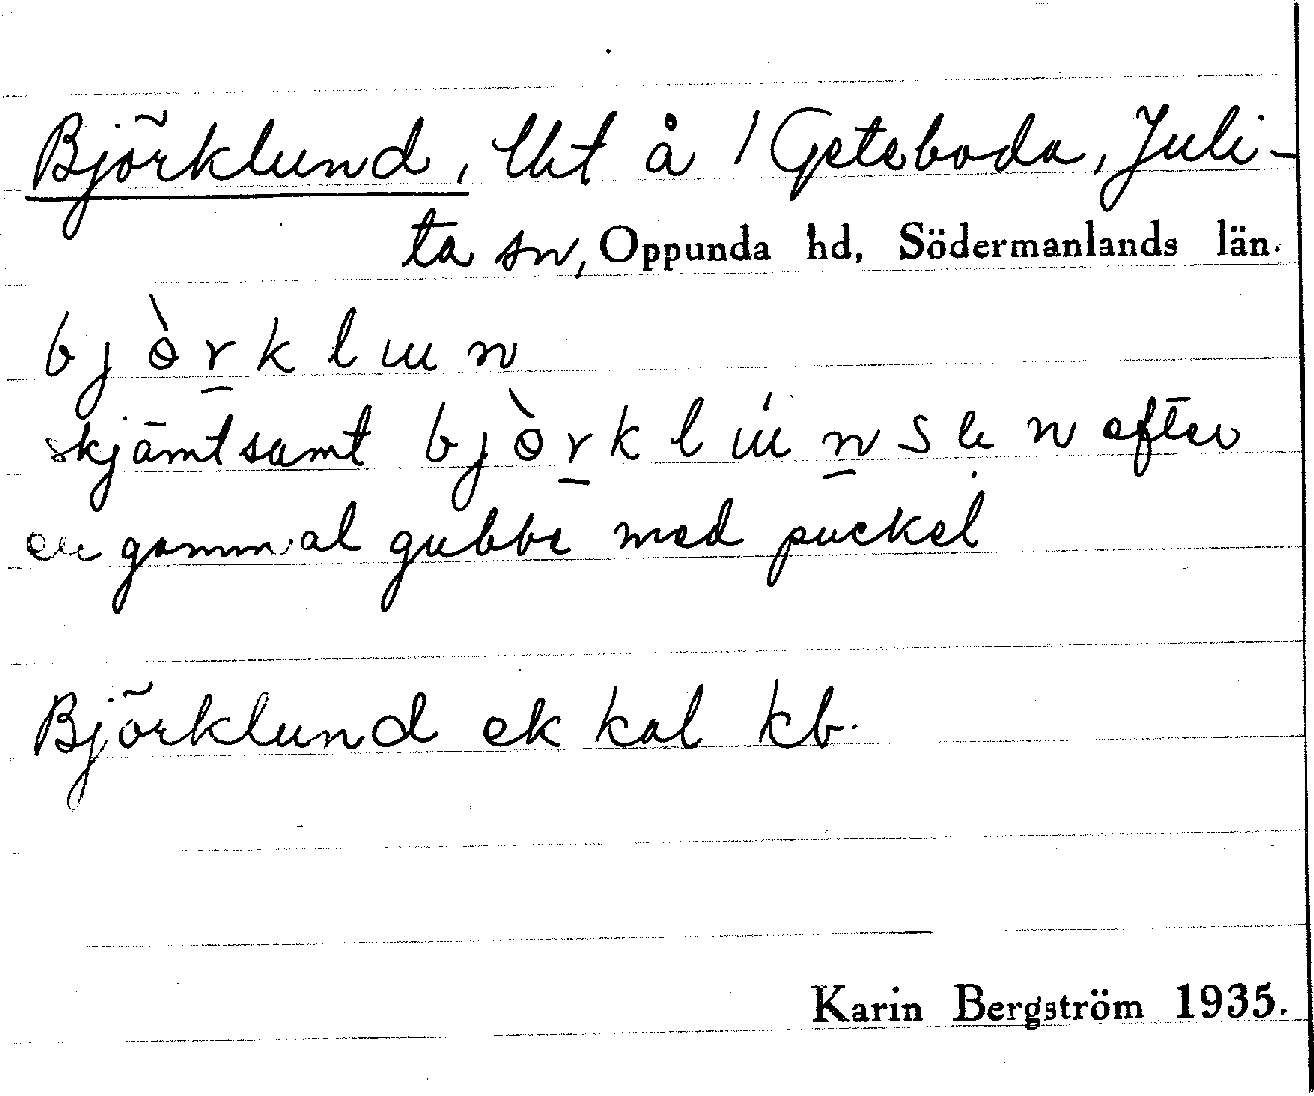 Björklund, lht å 1 Geteboda, Juli-
ta sn, Oppunda hd, Södermanlands län.
bjòrklun
skjämtsamt bjòrklúnsen efter
en gammal gubbe med puckel
Björklund ek kal kb.
Karin Bergström 1935.